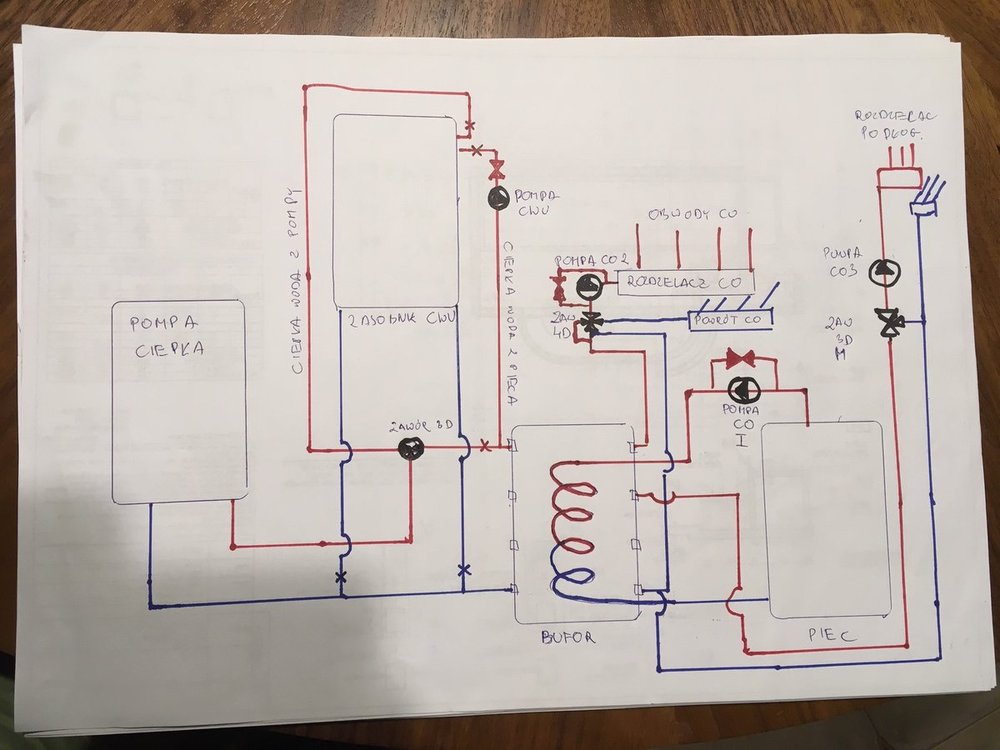 POMPA
CIEPŁA
CIEPŁA WODA Z POMPY
ZASOBNIK CWU
POMPA
CWU
CIEPŁA WODA Z PIECA
ZAWÓR 3D
OBWODY CO
POMPA CO 2
ROZDZIELACZ CO
ZAW
4D
POWRÓT CO
POMPA
CO
I
ROZDZIELAC
PODŁOG.
POMPA
CO3
ZAW
3D
M
BUFOR
PIEC